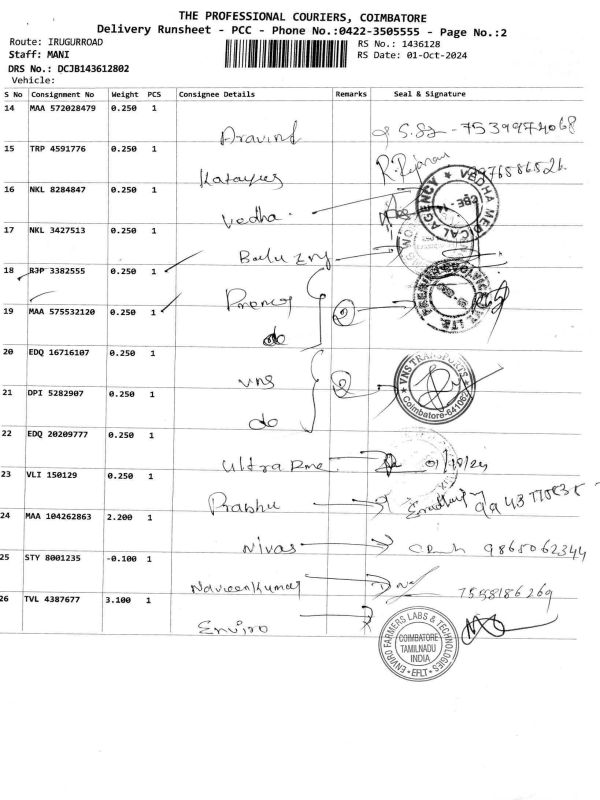 THE PROFESSIONAL COURIERS, COIMBATORE
Delivery Runsheet - PCC - Phone No.:0422-3505555 - Page No.:2
Route: IRUGURROAD
RS No.: 1436128
Staff: MANI
RS Date: 01-Oct-2024
DRS No.: DCJB143612802
Vehicle:
S No Consignment No Weight PCS Consignee Details Remarks Seal & Signature
14 MAA 572028479 0.250 1
Aravind 7539974068
15 TRP 4591776 0.250 1
16 NKL 8284847 0.250 1
Vedha
VEDHA MEDICAL AGENCY
17 NKL 3427513 0.250 1
18 BJP 3382555 0.250 1
19 MAA 575532120 0.250 1
do
20 EDQ 16716107 0.250 1
vns
VNS TRANSPORTS
Coimbatore-641062
21 DPI 5282907 0.250 1
do
22 EDQ 20209777 0.250 1
ultra 01/10/24
23 VLI 150129 0.250 1
Prabhu
24 MAA 104262863 2.200 1
Nivas 9865062344
25 STY 8001235 -0.100 1
Naveenkumar 7558186269
26 TVL 4387677 3.100 1
Enviro
ENVIRO FARMERS LABS & TECHNOLOGIES
COIMBATORE
TAMILNADU
INDIA
EFLT